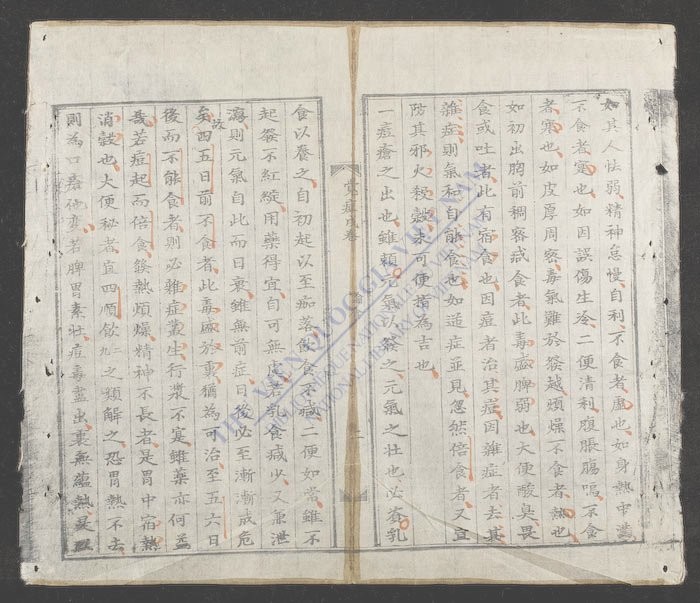 如其人怯弱精神怠慢自利不食者虛也如身熱中滿
不食者實也如因誤傷生冷二便清利腹脹腸鳴不食
者寒也如皮厚周密毒氣難於發越煩燥不食者熱也
如初出胸前稠密或食者此毒盛脾弱也大便酸臭畏
食或吐者此有宿食也因痘者治其痘因雜症者去其
雜症則氣和自能食也如逆症並見忽然倍食者又宜
防其邪火殺穀未可便指為吉也
一痘瘡之出也雖賴元氣以發之元氣之壯也必資乳
食以養之自初起以至痂落飲食不減二便如常雖不
起發不紅綻用藥得宜自可無虞若乳食減少又兼泄
瀉則元氣自此而日衰雖無前症日後必至漸漸成危
矣故四五日前不食者此毒盛於裏猶為可治至五六日
後而不能食者則必雜症叢生行漿不寔雖藥亦何益
哉若痘起而倍食發熱煩燥精神不長者是胃中宿熱
消穀也大便秘者宜四順飲之類解之恐胃熱不去
則為口疳他變若脾胃素壯痘毒盡出裏無蘊熱
THƯ VIỆN QUỐC GIA VIỆT NAM
BIBLIOTHÈQUE NATIONALE DU VIETNAM
NATIONAL LIBRARY OF VIETNAM